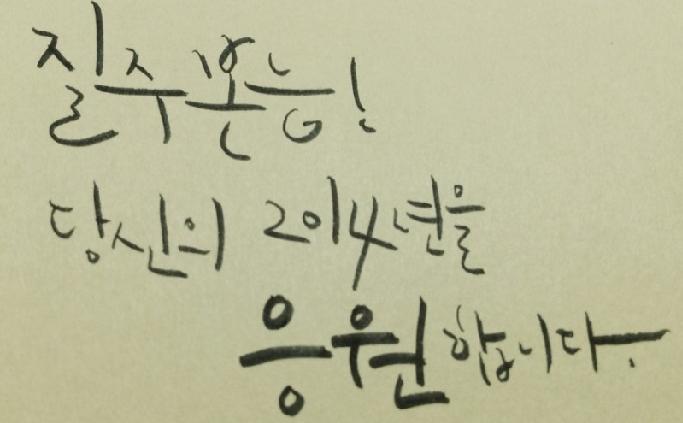 질주본능!
당신의 2014년을
응원합니다.